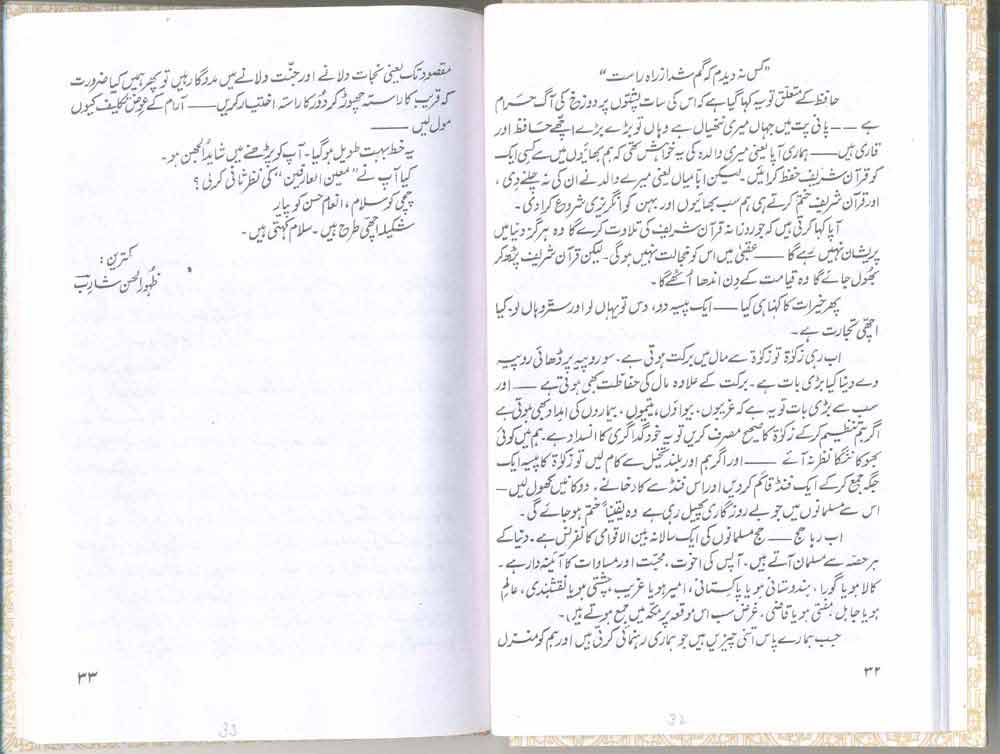 ”کس نہ دیدم کہ گم شد از راہ راست“
حافظ کے متعلق تو یہ کہا گیا ہے کہ اس کی سات پشتوں پر دوزخ کی آگ حرام
ہے ــــ پانی پت میں جہاں میری ننھیال ہے وہاں تو بڑے بڑے اچھے حافظ اور
قاری ہیں ــــ ہماری آپا یعنی میری والدہ کی یہ خواہش تھی کہ ہم بھائیوں میں سے کسی ایک
کو قرآن شریف حفظ کرائیں۔ لیکن ابا میاں یعنی میرے والد نے ان کی نہ چلنے دی،
اور قرآن شریف ختم کرتے ہی ہم سب بھائیوں اور بہن کو انگریزی شروع کرا دی۔
آپا کہا کرتی ہیں کہ جو روزانہ قرآن شریف کی تلاوت کرے گا وہ ہرگز دنیا میں
پریشان نہیں رہے گا ــــ عقبیٰ میں اس کو خجالت نہیں ہوگی۔ لیکن قرآن شریف پڑھ کر
بھول جائے گا وہ قیامت کے دن اندھا اُٹھے گا۔
پھر خیرات کا کہنا ہی کیا ــــ ایک پیسہ دو، دس تو یہاں لو اور ستّر وہاں لو۔ کیا
اچھی تجارت ہے۔
اب رہی زکوٰۃ تو زکوٰۃ سے مال میں برکت ہوتی ہے۔ سو روپیہ پر ڈھائی روپیہ
دے دینا کیا بڑی بات ہے۔ برکت کے علاوہ مال کی حفاظت بھی ہوتی ہے ــــ اور
سب سے بڑی بات تو یہ ہے کہ غریبوں، بیواؤں، یتیموں، بیماروں کی امداد بھی ہوتی ہے
اگر ہم تنظیم کر کے زکوٰۃ کا صحیح مصرف کریں تو یہ خود گداگری کا انسداد ہے۔ ہم میں کوئی
بھوکا ننگا نظر نہ آئے ــــ اور اگر ہم اور بلند تخیل سے کام لیں تو زکوٰۃ کا پیسہ ایک
جگہ جمع کر کے ایک فنڈ قائم کر دیں اور اس فنڈ سے کارخانے۔ دوکانیں کھول لیں ــ
اس سے مسلمانوں میں جو بے روزگاری پھیل رہی ہے وہ یقیناً ختم ہو جائے گی۔
اب رہا حج ــــ حج مسلمانوں کی ایک سالانہ بین الاقوامی کانفرنس ہے۔ دنیا کے
ہر حصہ سے مسلمان آتے ہیں۔ آپس کی اخوت، محبّت اور مساوات کا آئینہ دار ہے۔
کالا ہو یا گورا، ہندوستانی ہو یا پاکستانی، امیر ہو یا غریب، چشتی ہو یا نقشبندی، عالِم
ہو یا جاہل، مفتی ہو یا قاضی، غرض سب اس موقعہ پر مکّہ میں جمع ہوتے ہیں)۔
جب ہمارے پاس اتنی چیزیں ہیں جو ہماری رہنمائی کرتی ہیں اور ہم کو منزل
۳۲
32
مقصود تک یعنی نجات دلانے اور جنّت دلانے میں مددگار ہیں تو پھر ہمیں کیا ضرورت
کہ قریب کا راستہ چھوڑ کر دُور کا راستہ اختیار کریں ــــ آرام کے عوض تکلیف کیوں
مول لیں ــــ
یہ خط بہت طویل ہو گیا۔ آپ کو پڑھنے میں شاید الجھن ہو۔
کیا آپ نے ”معین العارفین“ کی نظرِ ثانی کر لی؟
چچی کو سلام، انعام حسن کو پیار
شکیلہ اچھی طرح ہیں۔ سلام کہتی ہیں۔
کمترین:
ظہور الحسن شارب
۳۳
33